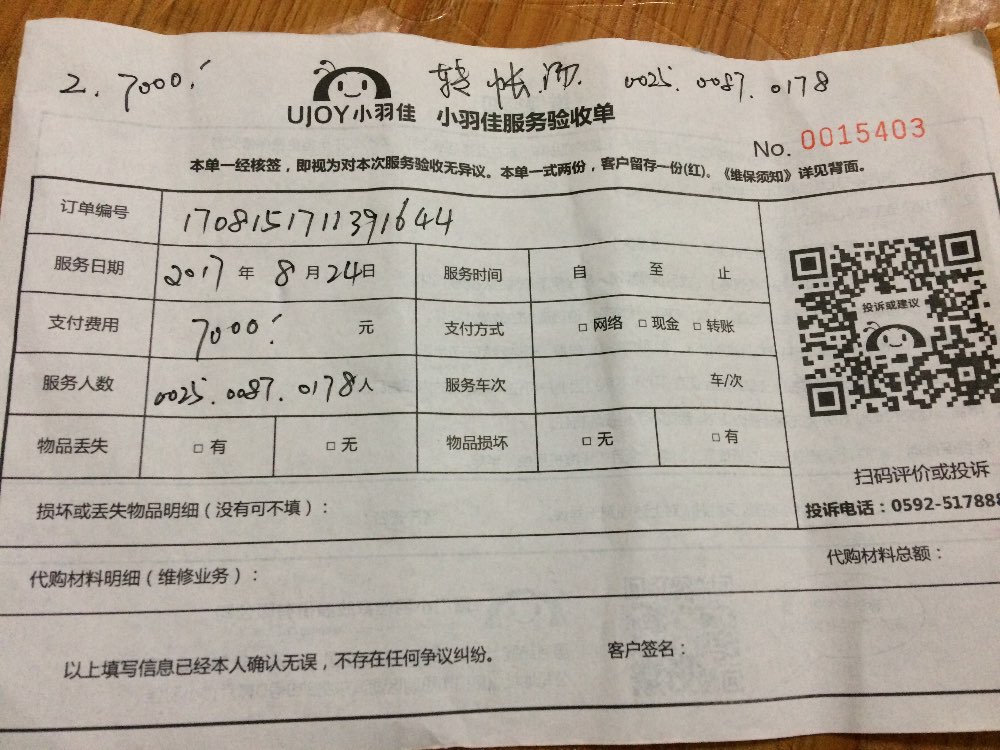 2. 7000.- 转帐 0025. 0087. 0178
UJOY小羽佳 小羽佳服务验收单
No. 0015403
本单一经核签，即视为对本次服务验收无异议。本单一式两份，客户留存一份(红)。《维保须知》详见背面。
订单编号 1708151711391644
服务日期 2017 年 8 月 24 日 服务时间 自 至 止
支付费用 7000.- 元 支付方式 □ 网络 □ 现金 □ 转账
投诉或建议
服务人数 0025. 0087. 0178 人 服务车次 车/次
物品丢失 □ 有 □ 无 物品损坏 □ 无 □ 有
扫码评价或投诉
投诉电话：0592-517888
损坏或丢失物品明细（没有可不填）：
代购材料明细（维修业务）： 代购材料总额：
以上填写信息已经本人确认无误，不存在任何争议纠纷。 客户签名：